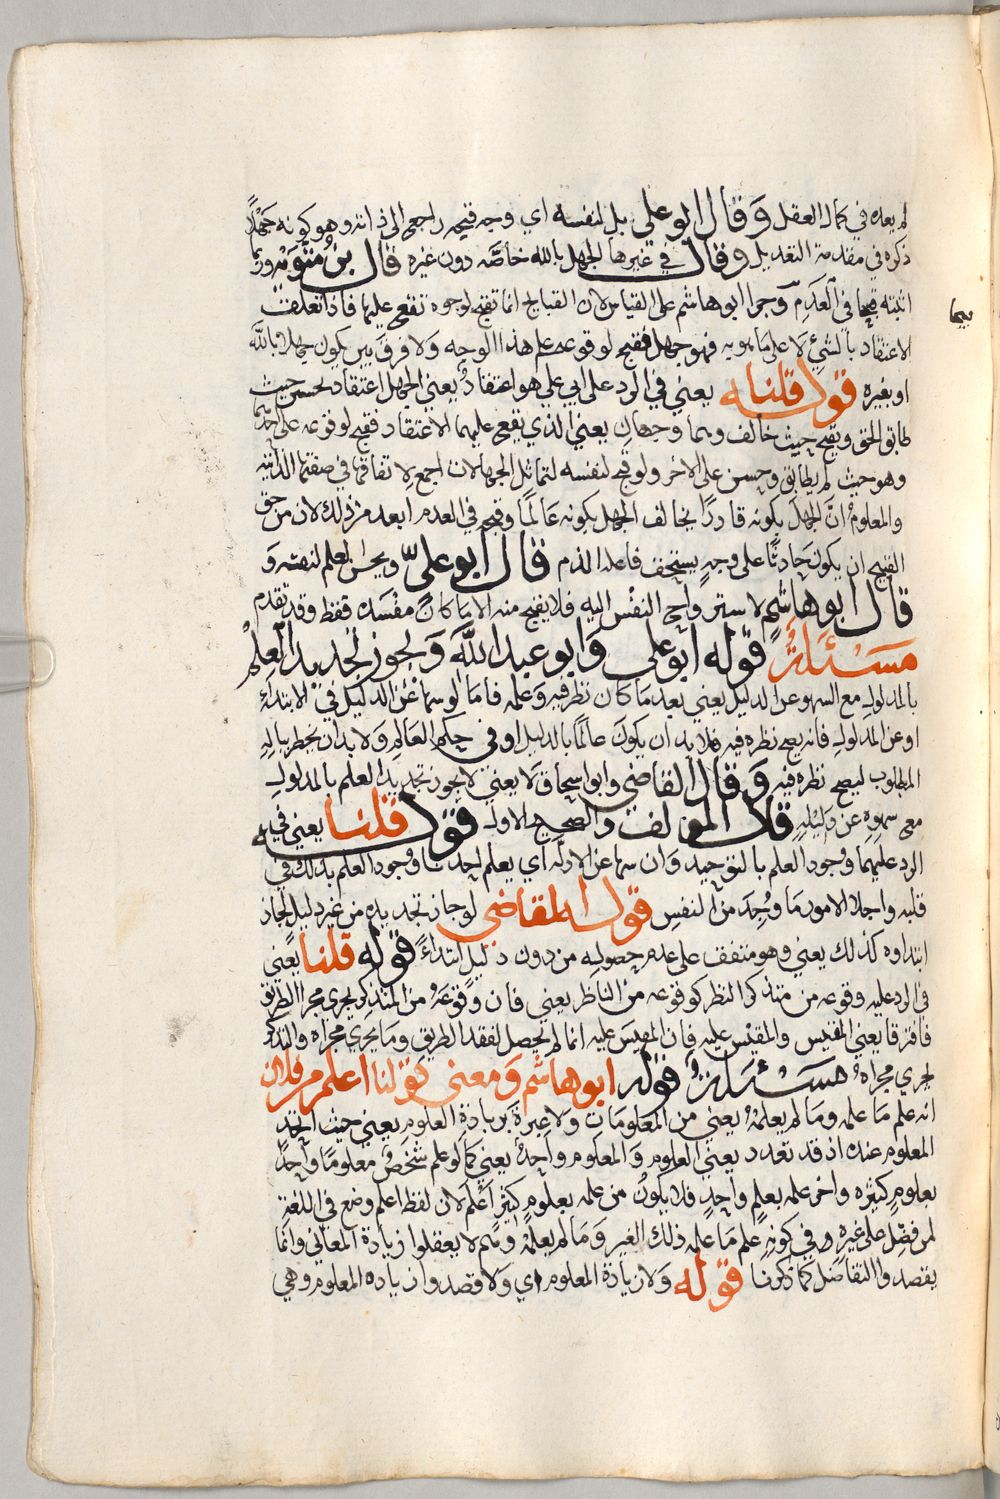 لم يعده في كمال العقل وقال ابو علي بل لنفسه اي وجه قبحه راجع الى ذاته وهو كونه جهلاً
ذكره في مقدمة التعديل وقال في غيرها الجهل بالله خاصه دون غيره قال بن متويه وربما
اثبته قبيحا في العدم وجرا ابو هاشم على القياس لان القبايح انما تقبح لوجوه تقع عليها فاذا تعلق
الاعتقاد بالشيء لا على ما هو به فهو جهل فقبح لوقوعه على هذا الوجه ولا فرق بين كون جهلا بالله
او بغيره قوله قلنا يعني في الرد على ابي علي هو اعتقادٌ يعني الجهل اعتقاد لحسن حيث
طابق الحق وبقبح حيث خالف وهما وجهان يعني الذي يقع عليهما الاعتقاد فقبح لوقوعه على احدهما
وهو حيث لم يطابق وحسن على الاخر ولو قبح لنفسه لتماثل الجهالات اجمع لاتفاقها في صفتها الذاتيه
والمعلوم انّ الجهل بكونه قادرًا يخالف الجهل بكونه عالمًا وقبحه في العدم ابعد من ذلك لان من حق
القبيح ان يكون حادثًا على وجهٍ يستحق فاعله الذم قال ابو علي ويحسن العلم لنفسه و
قال ابو هاشم لاسترواح النفس اليه فلا يقبح منه الا ما كان مفسدة فقط وقد تقدم
مسئلة قوله ابو علي وابو عبد الله ويجوز تجديد العلم
بالمدلول مع السهو عن الدليل يعني بعد ما كان نظر فيه وعلمه فاما لو سها عن الدليل في الابتداء
او عن المدلول فانه يصح نظره فيه فلا بد ان يكون عالمًا بالدليل او في حكم العالم ولا بد ان يخطر بباله
المطلوب ليصح نظره فيه وقال القاضي وابو اسحاق لا يعني لا يجوز تجديد العلم بالمدلول
مع سهوه عن دليله قال المولف والصحيح الاول قوله قلنا يعني في
الرد عليهما وجود العلم بالتوحيد وان سها عن الادله اي يعلم احدنا وجود العلم بذلك في
قلبه واجلا الامور ما وُجِدَ من النفس قوله القاضي لو جاز تجديده من غير دليل لجاز
ابتداوه كذلك يعني وهو متفق على عدم حصوله من دون دليل ابتداءً قوله قلنا يعني
في الرد عليه وقوعه من متذكر النظر كوقوعه من الناظر يعني فان وقوعه من المتذكر يجري مجرا الطريق
فافترقا يعني المقيس والمقيس عليه فان المقيس عليه انما لم يحصل لفقد الطريق وما يجري مجراه والتذكر
يجري مجراه مسئلة قوله ابو هاشم ومعنى قولنا اعلم من فلان
انه علم ما علمه وما لم يعلمه يعني من المعلومات ولا عبرة بزيادة العلوم يعني حيث اتحد
المعلوم عنده اذ قد تعدد يعني العلوم والمعلوم واحدٌ يعني كما لو علم شخص معلومًا واحدًا
بعلوم كثيره واخر علمه بعلم واحدٍ فلا يكون من علمه بعلوم كثيره اعلم لان لفظ اعلم وضع في اللغة
لمن فضل على غيره في كونه علم ما علمه ذلك الغير وما لم يعلمه وهم لا يعقلوا زيادة المعاني وانما
يقصدوا التفاضل كما ذكرنا قوله ولا زيادة المعلوم اي ولا قصدوا زياده المعلوم وهي